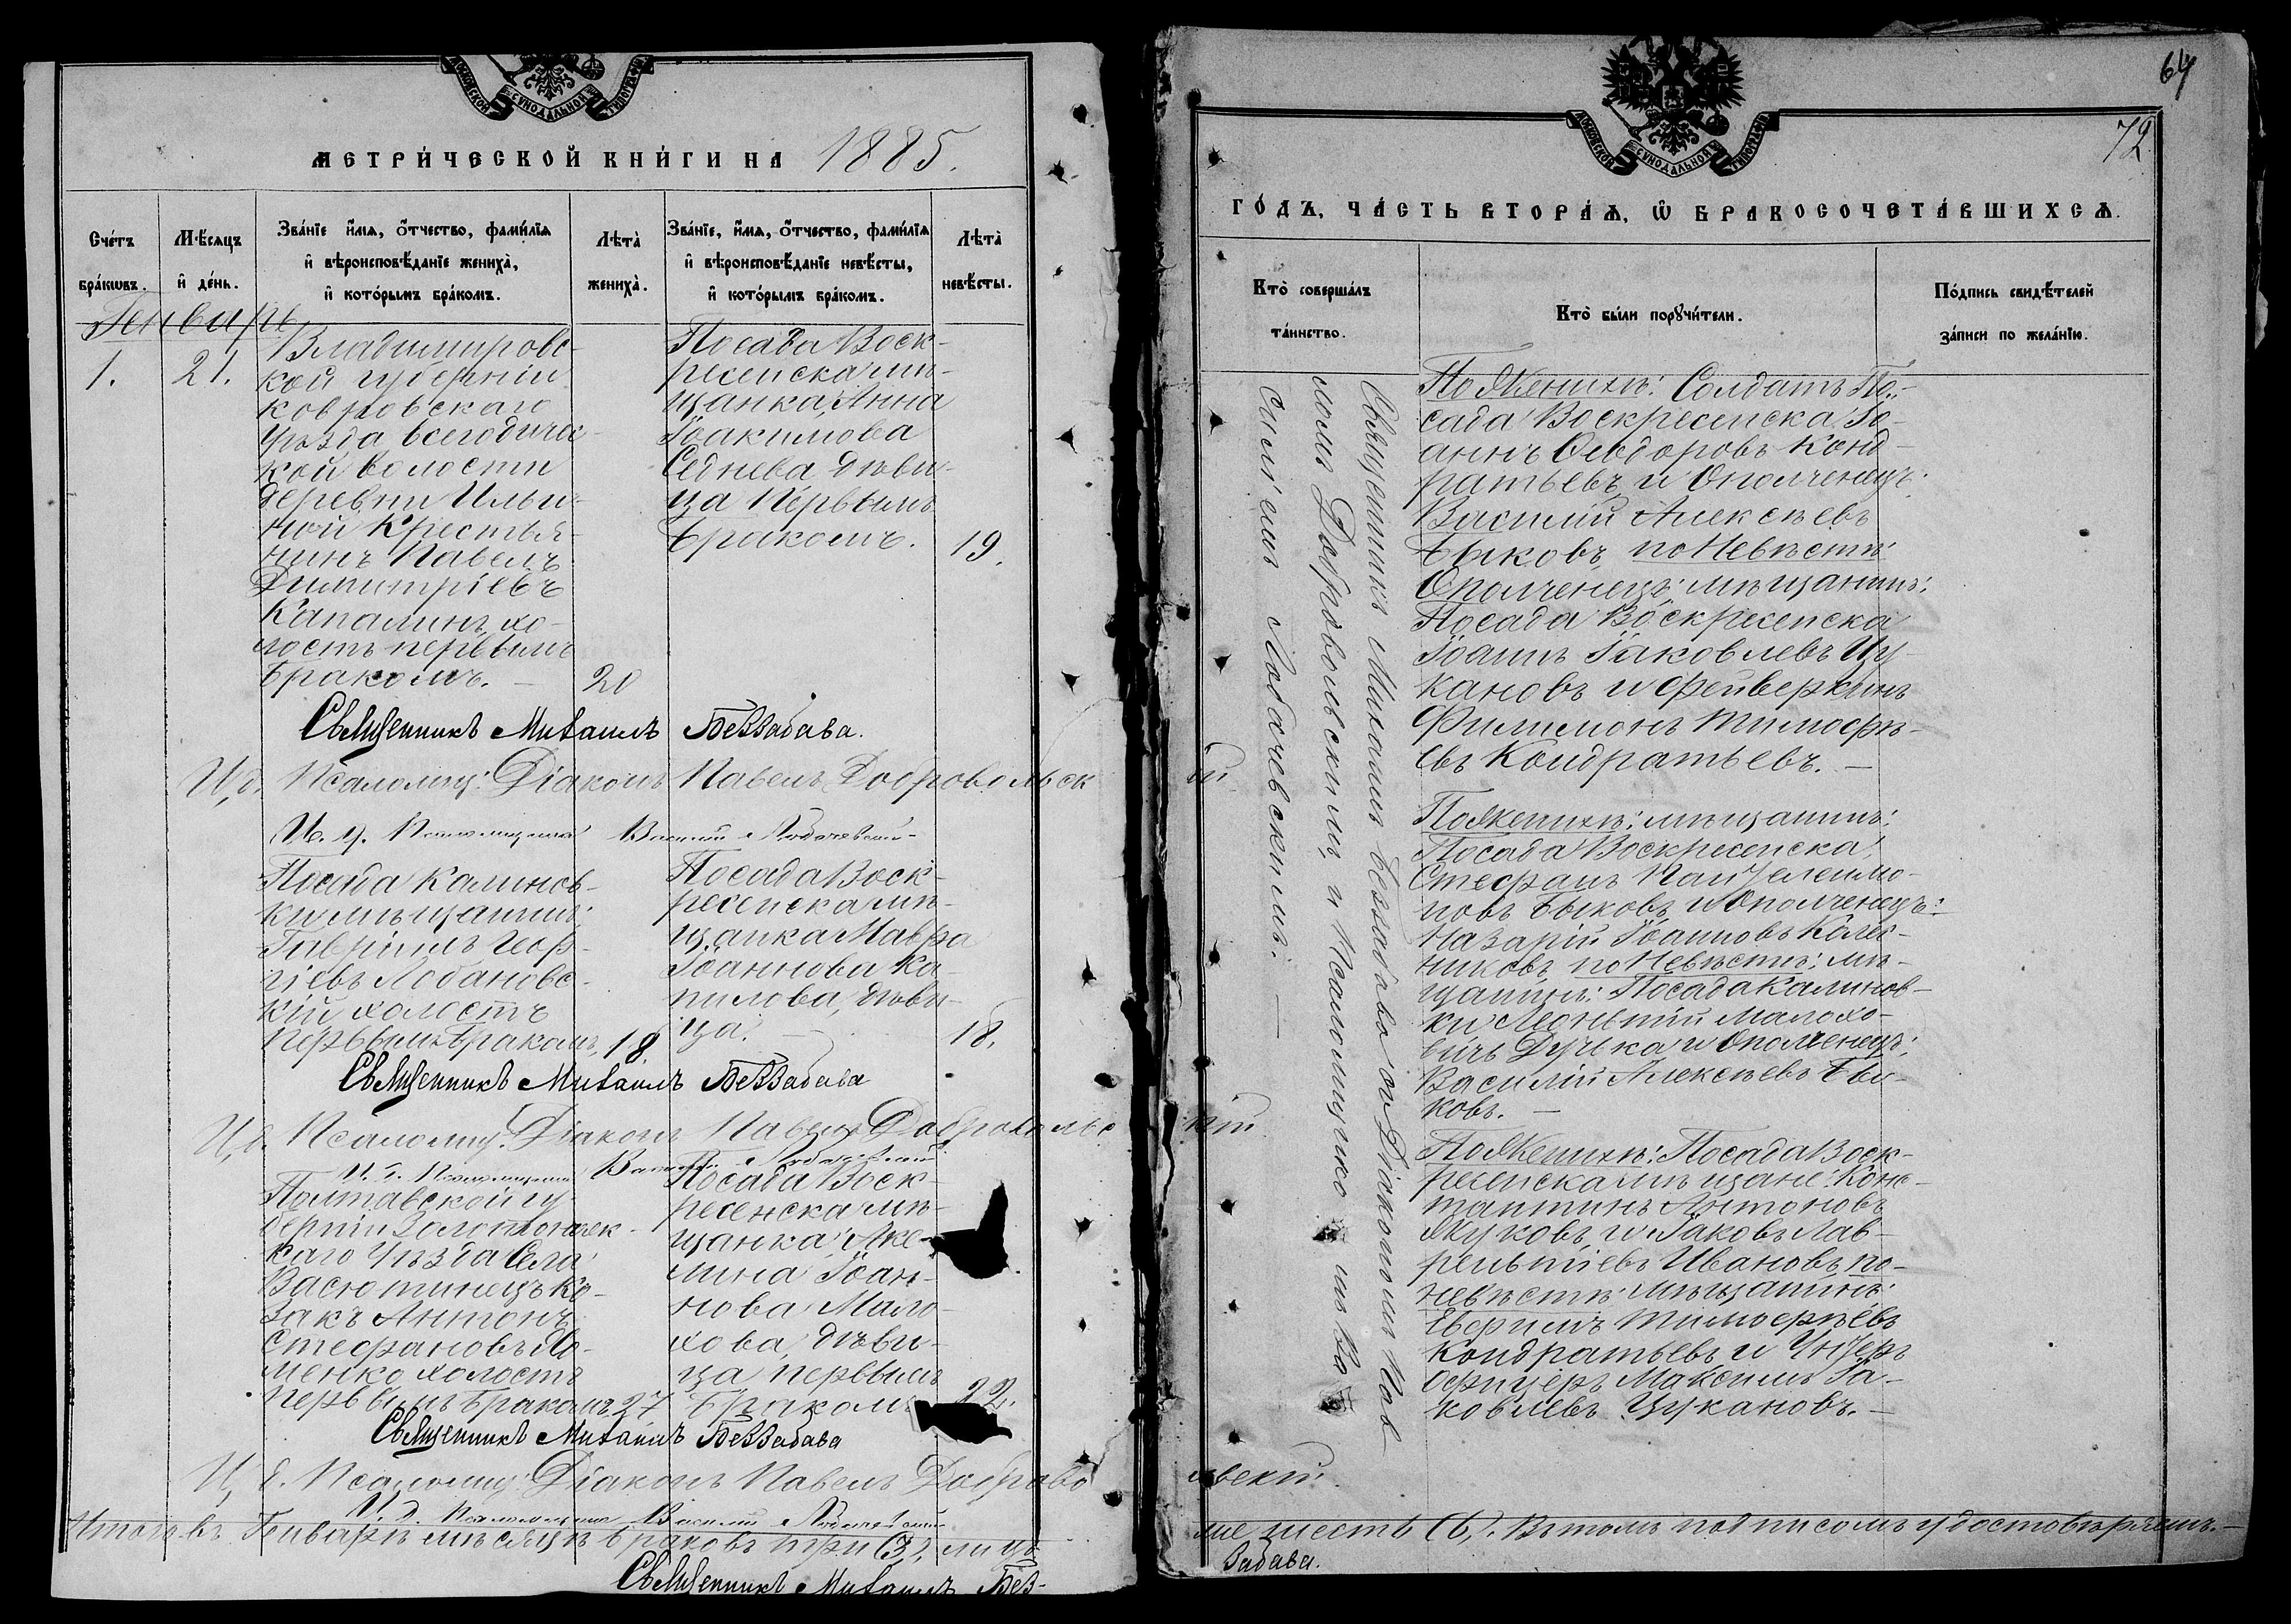 МОСКОВСКОЙ СУНОДАЛЬНОЙ ТИПОГРАФІИ
МЕТРИ́ЧЕСКОЙ КНИ́ГИ НА 1885.
Сче́тъ бра́ковъ.
Мѣ́сяцъ и де́нь.
Зва́ніе и҆́мя, ѻ҆́тчество, фами́лія
и҆ вѣроисповѣ́даніе жениха̀,
и҆ кото́рымъ бра́комъ.
Лѣта̀ жениха̀.
Зва́ніе, и҆́мя, ѻ҆́тчество, фами́лія
и҆ вѣроисповѣ́даніе невѣ́сты,
и҆ кото́рымъ бра́комъ.
Лѣта̀ невѣ́сты.
Генварь
1. 21.
Владимировс-
кой губерніи
Ковровскаго
Уѣзда, Всегодичес-
кой волости
деревни Ильи-
ной Крестья-
нинъ Павелъ
Димитріевъ
Капалинъ, хо-
лостъ первымъ
бракомъ. — 20
Посада Воск-
ресенска мѣ-
щанка, Анна
Іоакимова
Седнева дѣви-
ца первымъ
бракомъ. 19.
Священникъ Михаилъ Беззабава.
И, д. Псаломщ: Діаконъ Павелъ Добровольск
ій
И. д. Псаломщика Василій Лободчевскій
Посада Калинов-
ки мѣщанинъ:
Гавріилъ Геор-
гіевъ Лобановс-
кій холостъ
первымъ бракомъ, 18.
Посада Воск-
ресенска мѣ-
щанка Мавра
Іоаннова Ка-
пилова, дѣви-
ца. — 18.
Священникъ Михаилъ Беззабава
И, д. Псаломщ. Діаконъ Павелъ Добровольс
кій
И. д. Псаломщика Василій
Полтавской гу-
берніи Золотоношск-
каго Уѣзда Села
Васютинецъ Ко-
закъ Антонъ
Стефановъ Хо-
менко холостъ
первымъ бракомъ, 27
Посада Воск-
ресенска мѣ-
щанка, Аке-
лина Іоан-
нова Мало-
хова, дѣви-
ца первымъ
бракомъ 22.
Священникъ Михаилъ Беззабава
И, д. Псаломщ: Діаконъ Павелъ Доброво
льскій.
И. д. Псаломщика Василій
Итого въ Генварѣ мѣсяцѣ браковъ три (3), лицъ
Священникъ Михаилъ Без-
64
72
МОСКОВСКОЙ СУНОДАЛЬНОЙ ТИПОГРАФІИ
ГО́ДЪ, ЧА́СТЬ ВТОРА́Я, Ѽ БРАКОСОЧЕТА́ВШИХСЯ.
Кто̀ соверша́лъ
та́инство.
Кто̀ бы́ли поручи́тели.
По́дпись свидѣ́телей
за́писи по жела́нію.
Священникъ Михаилъ Беззабава съ Діакономъ Пав-
ломъ Добровольскимъ, и Псаломщикомъ Ва-
силіемъ
По Женихѣ: Солдатъ По-
сада Воскресенска Іо-
аннъ Ѳеодоровъ Конд-
ратьевъ, и Ополченецъ:
Василій Алексѣевъ
Быковъ, по Невѣстѣ:
Ополченецъ: мѣщанинъ:
Посада Воскресенска
Іоаннъ Іаковлевъ Цу-
кановъ и фейверкинъ
Филимонъ Тимофѣ-
евъ Кондратьевъ. —
По Женихѣ: мѣщанинъ:
Посада Воскресенска,
Стефанъ Пантелеимо-
новъ Быковъ, и Ополченецъ:
Назарій Іоанновъ Колес-
никовъ, по Невѣстѣ: мѣ-
щанинъ: Посада Калинов-
ки Леонтій Малохо-
вичъ Дучка и Ополченецъ:
Василій Алексѣевъ Бы-
ковъ. —
По Женихѣ: Посада Воск-
ресенска мѣщане: Конс-
тантинъ Антоновъ
Жуковъ, и Іаковъ Лав-
рентіевъ Ивановъ, по-
невѣстѣ: мѣщанинъ:
Евфимъ Тимофѣевъ
Кондратьевъ и Унтеръ
офицеръ Максимъ Іа-
ковлевъ Цукановъ. —
шесть (6). Въ томъ подписомъ удостовѣряемъ. —
забава.